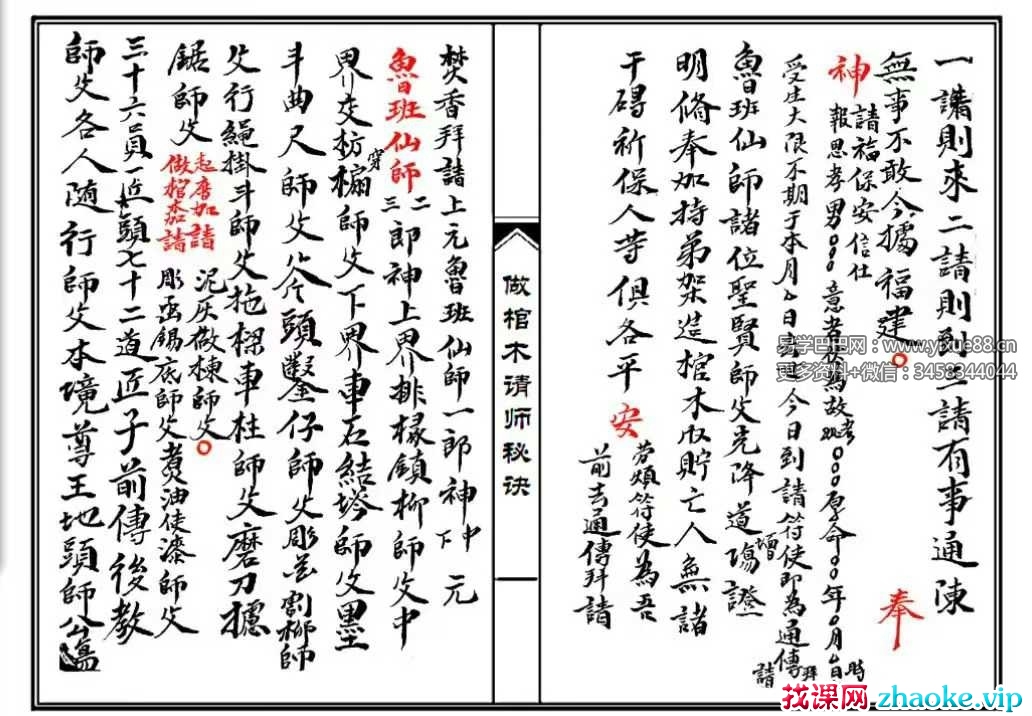 一請則來二請則到三請有事通陳
無事不敢今據福建○ 奉
神請福保安信仕
報恩孝男○○○意者茲為故考妣○○○原命○○年○月○日時
受生大限不期于本月○日身今日到請符使即為通傳拜請
魯班仙師諸位聖賢師父先降道場壇證
明脩奉加持弟架造棺木收貯亡人無諸
干碍祈保人等俱各平安
勞煩符使為吾
前去通傳拜請
做棺木请师秘诀
焚香拜請上元魯班仙師一郎神中下元
魯班仙師二三郎神上界排椽鎮柳師父中
界交枋穿榀師父下界車石結塔師父墨
斗曲尺師父斧頭鑿仔師父彫花割柳師
父行繩掛斗師父拖樑車柱師父磨刀據
鋸師父起厝加請
做棺木請
泥灰敬棟師父○
彫匠錫底師父煑油使漆師父
三十六員匠頭七十二道匠子前傳後教
師父各人随行師父本境尊王地頭師公
易学巴巴网 www.yixue88.cn
更多资料+微信：3458344044
找课网zhaoke.vip